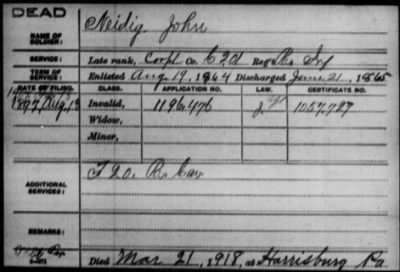 DEAD
NAME OF SOLDIER: Neidig, John
SERVICE: Late rank, Corpl Co. C 201 Reg't Pa Inf
TERM OF SERVICE: Enlisted Aug 19, 1864 Discharged June 21, 1865
DATE OF FILING. CLASS. APPLICATION NO. LAW. CERTIFICATE NO.
1897 Aug 13 Invalid, 1196,476 1057,727
Widow,
Minor,
ADDITIONAL SERVICES: F 20. Pa Cav
REMARKS:
Died Mar 21, 1918, at Harrisburg Pa